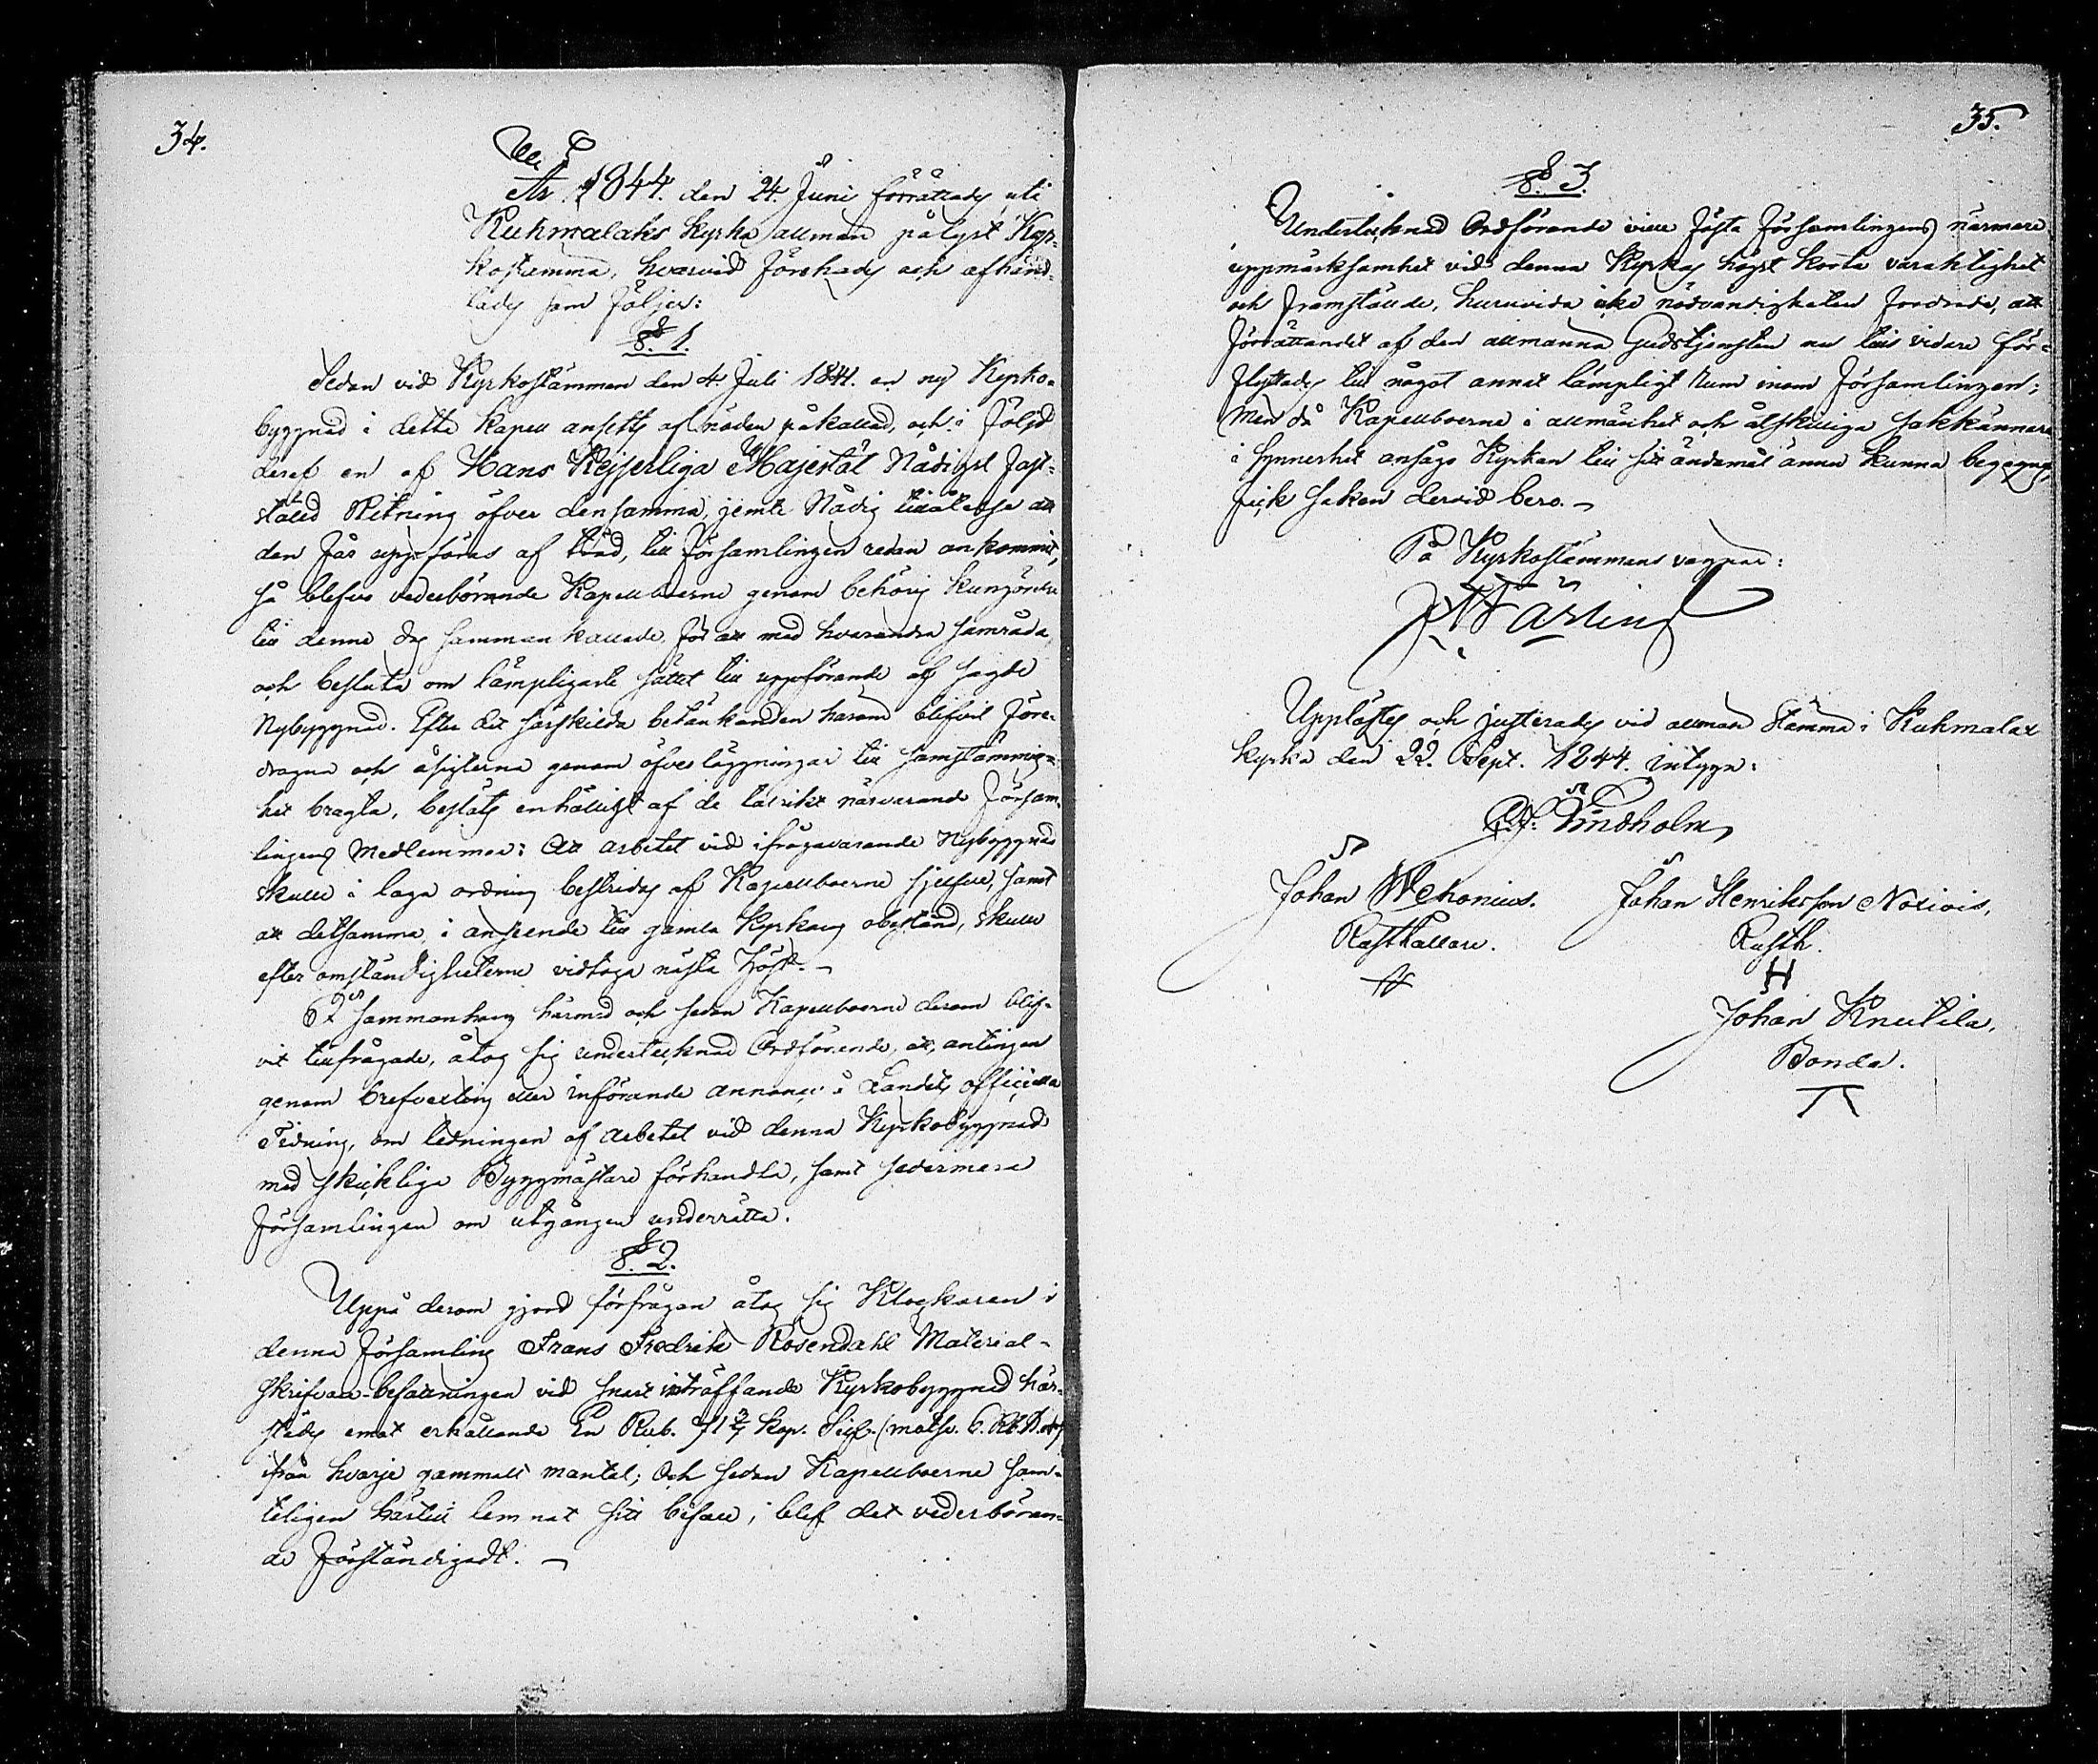 34.
År 1844. den 24. Juni förrättades uti
Kuhmalaks Kyrka allmän pålyst Kyr-
kostämma, hvarvid förehades och afhand-
lades som följer:
§. 1.
Sedan vid Kyrkostämman den 4 Juli 1841. en ny Kyrko-
byggnad i detta Kapell ansetts af nöden påkallad, och i följd
deraf en af Hans Kejserliga Majestät Nådigst fast-
stäld Ritning öfver densamma, jemte Nådig tillåtelse att
den får uppföras af träd, till Församlingen redan ankommit,
så blefvo vederbörande Kapellboerne genom behörig kungörelse
till denna dag sammankallade, för att med hvarandra samråda
och besluta om lämpligaste sättet till uppförande af sagde
Nybyggnad. Efter det särskilda betänkanden härom blifvit före-
dragna och åsigterna genom öfverläggningar till samstämmig-
het bragta, beslöts enhälligt af de talrikt närvarande Försam-
lingens Medlemmar: Att arbetet vid ifrågavarande Nybyggnad
skulle i laga ordning bestridas af Kapellboerne sjelfve, samt
att detsamma, i anseende till gamla Kyrkans obestånd, skulle
efter omständigheterne vidtaga nästa höst. -
I sammanhang härmed och sedan Kapellboerne derom blif-
vit tillfrågade, åtog sig undertecknad Ordförande, att, antingen
genom brefvexling eller införande annons i Landets officiella
Tidning, om ledningen af arbetet vid denna Kyrkobyggnad
med skicklige Byggmästare förhandla, samt sedermera
Församlingen om utgången underrätta.
§. 2.
Uppå derom gjord förfrågan åtog sig Klockaren i
denna Församling Frans Fredrik Rosendahl Material-
skrifvare-befattningen vid snart inträffande Kyrkobyggnad här-
städes emot erhållande En Rub. 71 3/7 Kop. Silf. (motsv. 6. Rb. B.)
ifrån hvarje gammalt mantal; Och sedan Kapellboerne sam-
teligen härtill lemnat sitt bifall, blef det vederböran-
de förständigadt. -
35.
§. 3.
Undertecknad Ordförande ville fästa Församlingens närmare
uppmärksamhet vid denna Kyrkas högst korta varaktighet
och framstälde, huruvida icke nödvändigheten fordrade, att
förrättandet af den allmänna Gudstjensten nu tills vidare för-
flyttades till något annat lämpligt Rum inom Församlingen;
Men då Kapellboerne i allmänhet och åtskilliga sakkännare
i synnerhet ansågo Kyrkan till sitt ändamål ännu kunna begagnas,
fick saken dervid bero. -
På Kyrkostämmans vägnar:
Upplästes och justerades vid allmän Stämma i Kuhmalax
kyrka den 22. Sept. 1844. intyga:
Lindholm
Johan Wehonius.
Rusthållare.
Johan Henriksson Noxiois,
Rusth.
H
Johan Knutila,
Bonde.